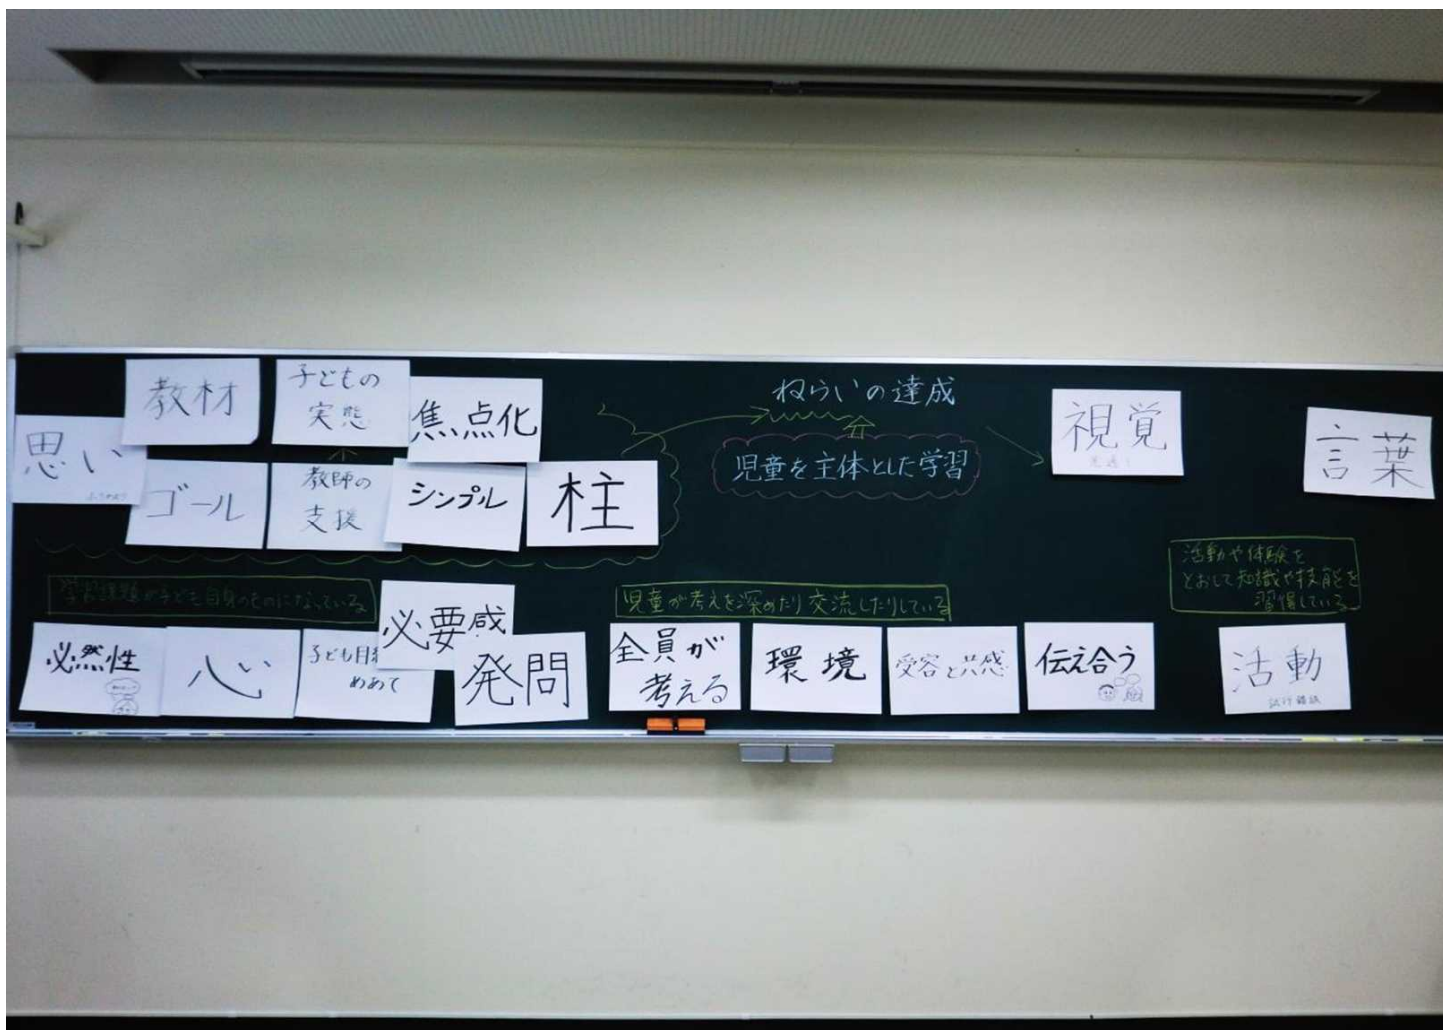 教材
子どもの
実態
焦点化
思い
ゴール
教師の
支援
シンプル
柱
ねらいの達成
児童を主体とした学習
視覚
言葉
学習課題が子ども自身のものになっている
必然性
心
子ども目線
めあて
必要感
発問
児童が考えを深めたり交流したりしている
全員が
考える
環境
受容と共感
伝え合う
活動や体験を
とおして知識や技能を
習得している
活動
試行錯誤